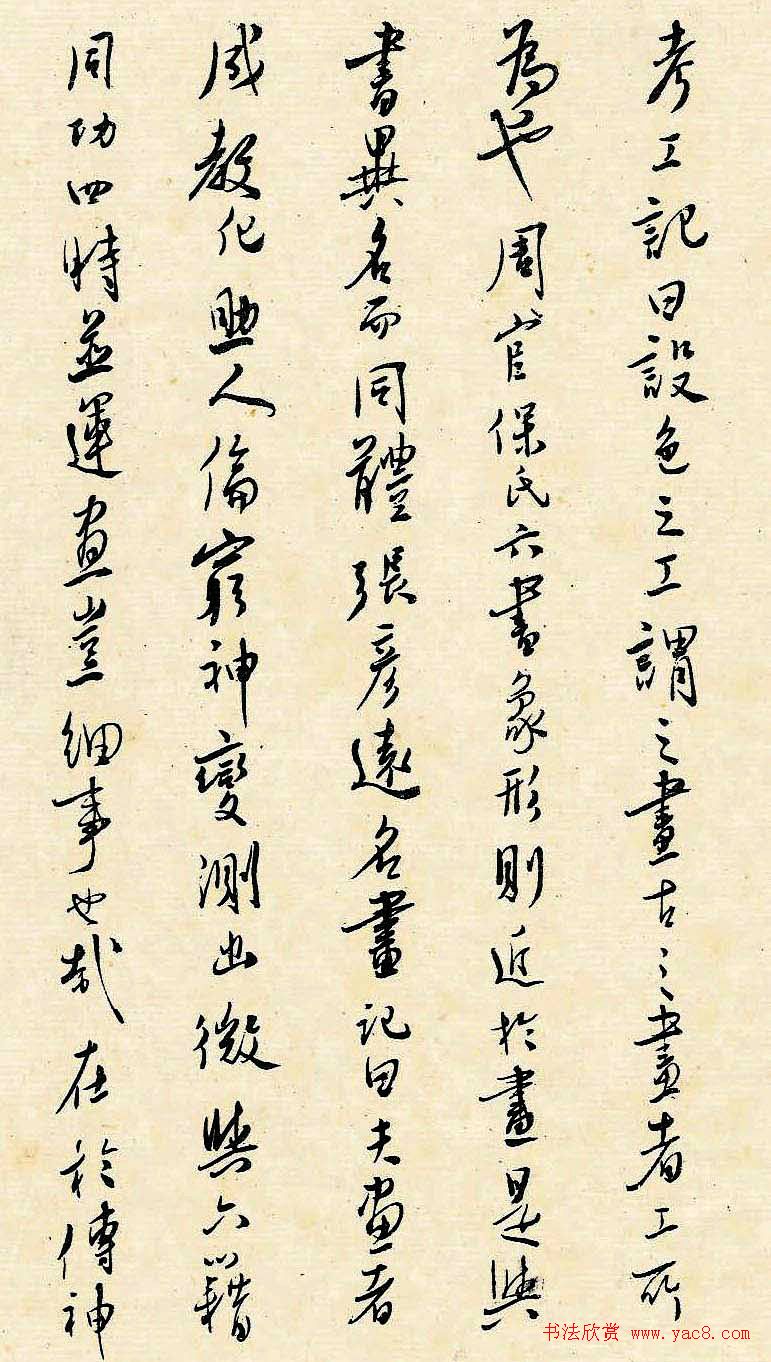 考工記曰設色之工謂之畫古之畫者工所
為也周官保氏六書象形則近於畫是與
書異名而同體張彥遠名畫記曰夫畫者
成教化助人倫窮神變測幽微與六籍
同功四時並運畫豈細事也哉在於傳神
书法欣赏 www.yac8.com